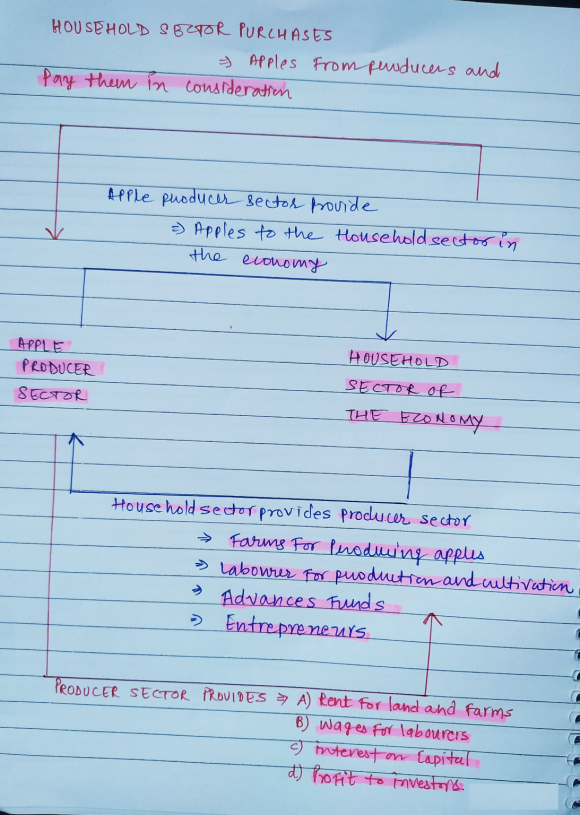 HOUSEHOLD SECTOR PURCHASES
⇒ Apples From producers and
Pay them in consideration
Apple producer sector provide
⇒ Apples to the Household sector in
the economy
APPLE
PRODUCER
SECTOR
HOUSEHOLD
SECTOR OF
THE ECONOMY
Household sector provides producer sector
⇒ Farms For Producing apples
⇒ Labourer For production and cultivation
⇒ Advances Funds
⇒ Entrepreneurs
PRODUCER SECTOR PROVIDES ⇒ A) Rent For land and Farms
B) Wages For labourers
C) interest on Capital
d) Profit to investors